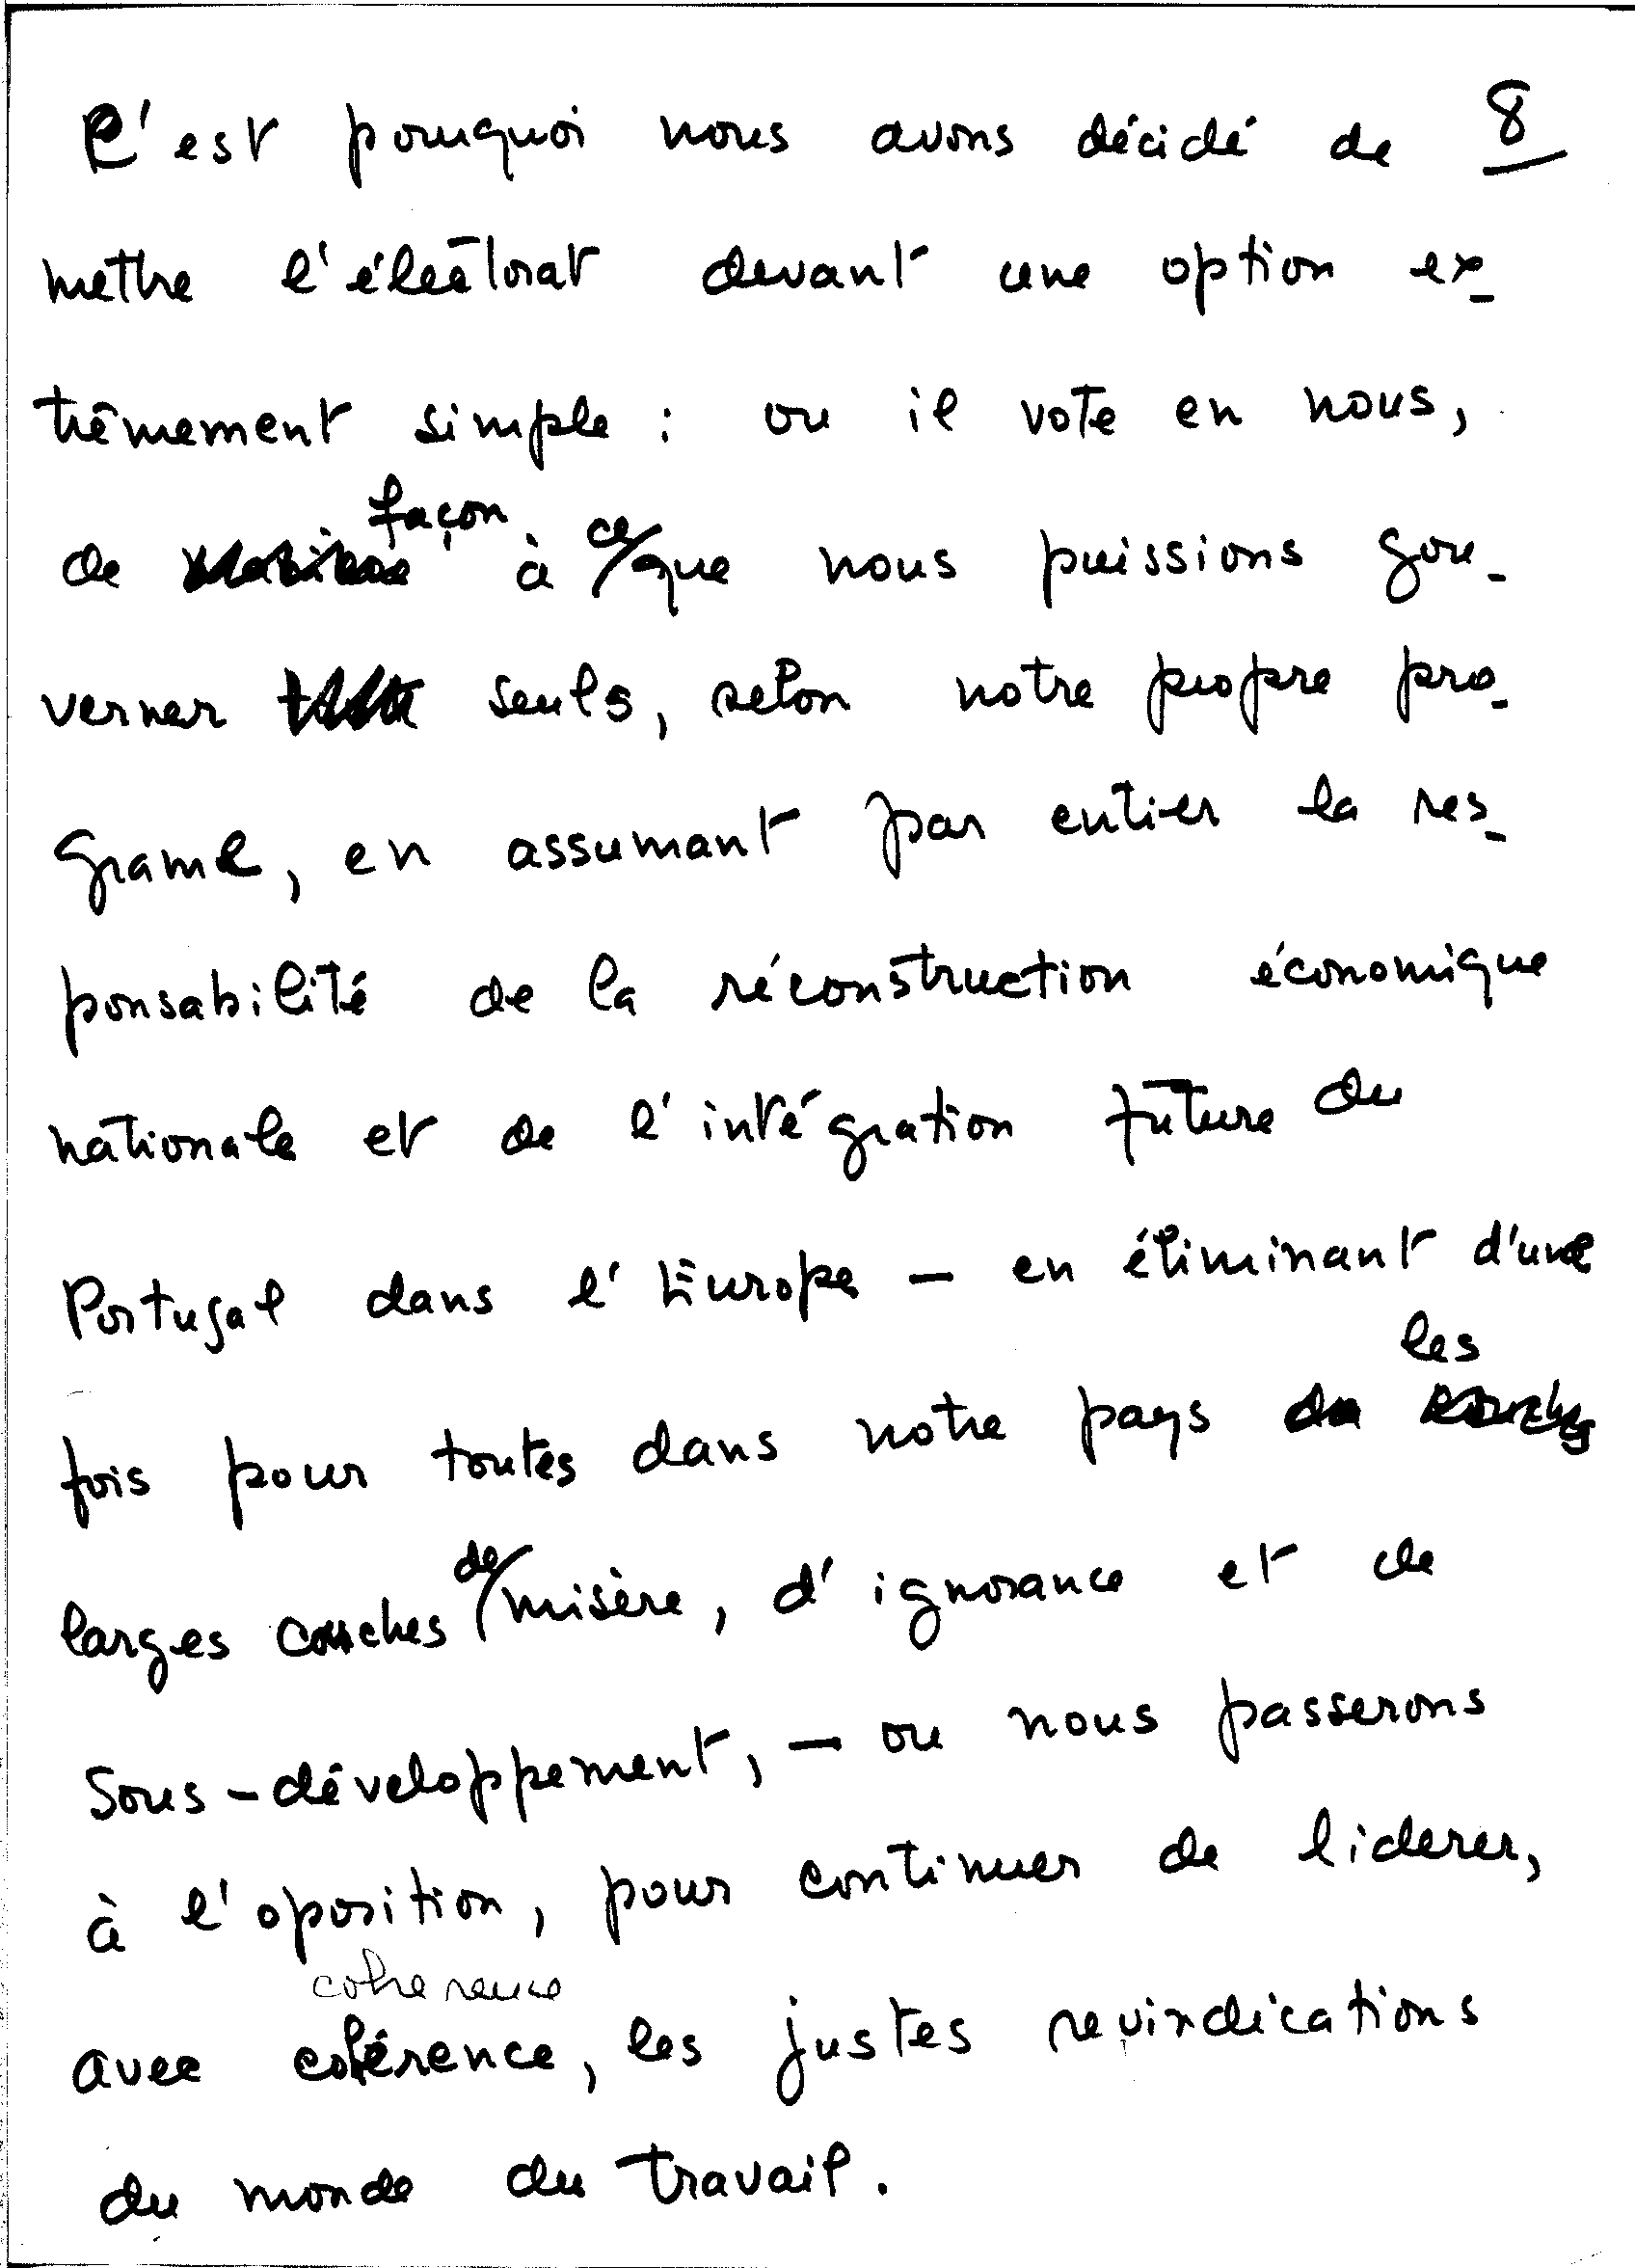 C'est pourquoi nous avons décidé de 8
mettre l'électorat devant une option ex-
trêmement simple : ou il vote en nous,
façon
de à ce que nous puissions gou-
verner seuls, selon notre propre pro-
grame, en assumant par entier la res-
ponsabilité de la réconstruction économique
nationale et de l'intégration future du
Portugal dans l'Europe — en éliminant d'une
les
fois pour toutes dans notre pays
larges couches de misère, d'ignorance et de
sous-développement, — ou nous passerons
à l'oposition, pour continuer de liderer,
coherence
avec cohérence, les justes revindications
du monde du travail.